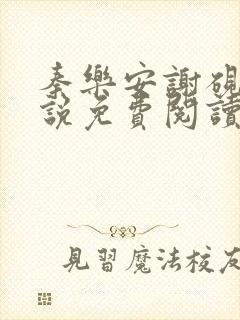 秦樂安謝硯
說免費閱讀
見習魔法校友